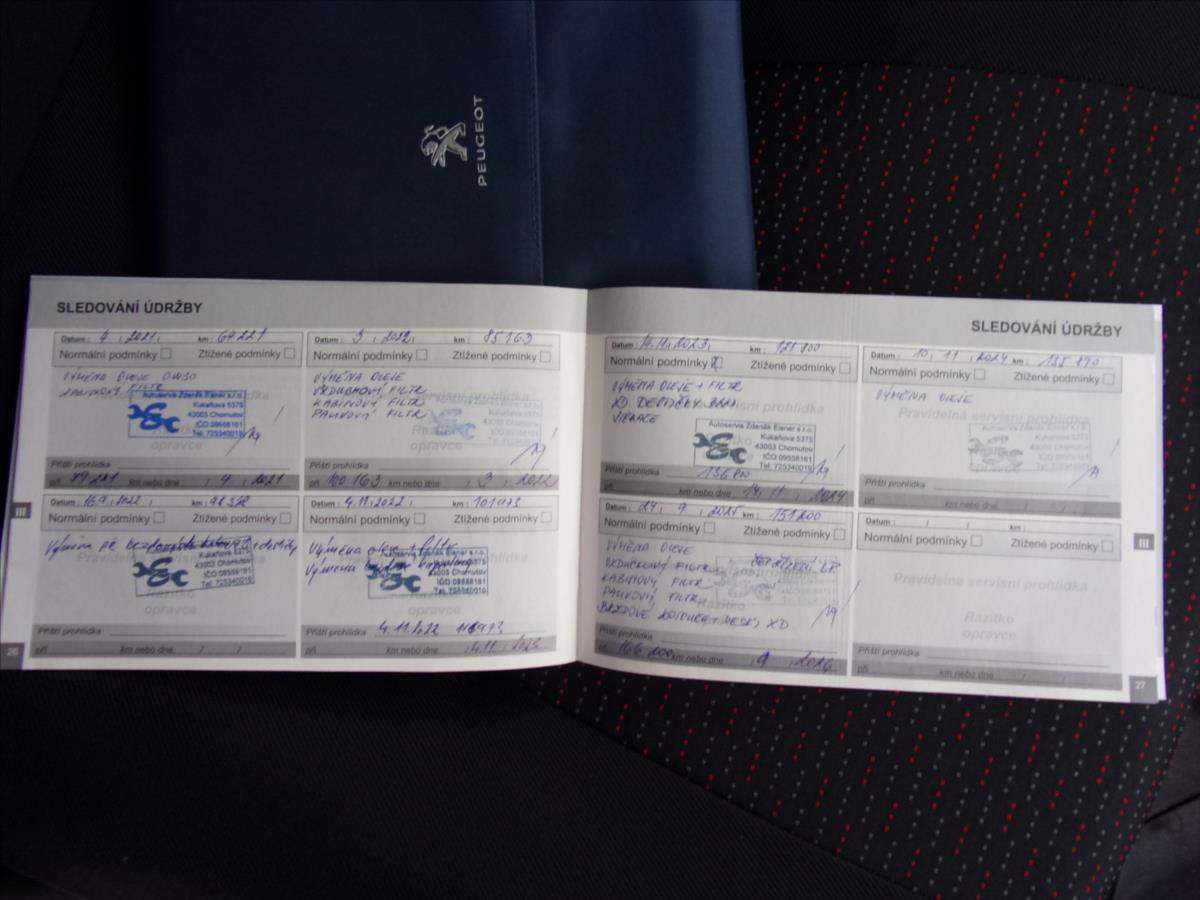 PEUGEOT
SLEDOVÁNÍ ÚDRŽBY
Datum : 4 / 2021 / km : 64221
Normální podmínky Ztížené podmínky
VÝMĚNA OLEJE
KABINOVÝ FILTR
Autoservis Zdeněk Eisner s.r.o.
Kukaňova 5375
43003 Chomutov
IČO:09558161
Tel. 725340019
Příští prohlídka
při 79221 km nebo dne / 4 / 2021
Datum : 3 / 2022 / km : 85163
Normální podmínky Ztížené podmínky
VÝMĚNA OLEJE
VZDUCHOVÝ FILTR
KABINOVÝ FILTR
PALIVOVÝ FILTR
Příští prohlídka
při 100 163 km nebo dne / 3 / 2022
Datum : 16.9./2022 / km :
Normální podmínky Ztížené podmínky
Výměna
Kukaňova 5375
43003 Chomutov
IČO:09558161
Tel. 725340019
Razítko
opravce
Příští prohlídka
při km nebo dne / /
Datum : 4.11./2022 / km : 101973
Normální podmínky Ztížené podmínky
Výměna oleje + filtr
Výměna
Autoservis Zdeněk Eisner s.r.o.
43003 Chomutov
IČO:09558161
Tel. 725340019
opravce
Příští prohlídka 4.11.2022 116973
při km nebo dne / 4.11 / 2023
26
III
SLEDOVÁNÍ ÚDRŽBY
Datum : 14.11./2023 km : 121 800
Normální podmínky Ztížené podmínky
VÝMĚNA OLEJE + FILTR
XD DESTIČKY
Autoservis Zdeněk Eisner s.r.o.
Kukaňova 5375
43003 Chomutov
IČO:09558161
Tel. 725340019
Příští prohlídka 136 800
při km nebo dne / 14.11 / 2024
Datum : 10 / 11 / 2024 km :
Normální podmínky Ztížené podmínky
VÝMĚNA OLEJE
Pravidelná servisní prohlídka
Příští prohlídka
při km nebo dne / /
Datum : 24 / 9 / 2025 km : 151200
Normální podmínky Ztížené podmínky
VÝMĚNA OLEJE
VZDUCHOVÝ FILTR
KABINOVÝ FILTR
PALIVOVÝ FILTR
BRZDOVÉ KOTOUČE + DESK. XD
Příští prohlídka
při 166 200 km nebo dne / 9 / 2026
Datum : / / km :
Normální podmínky Ztížené podmínky
Pravidelná servisní prohlídka
Razítko
opravce
Příští prohlídka
při km nebo dne / /
III
27